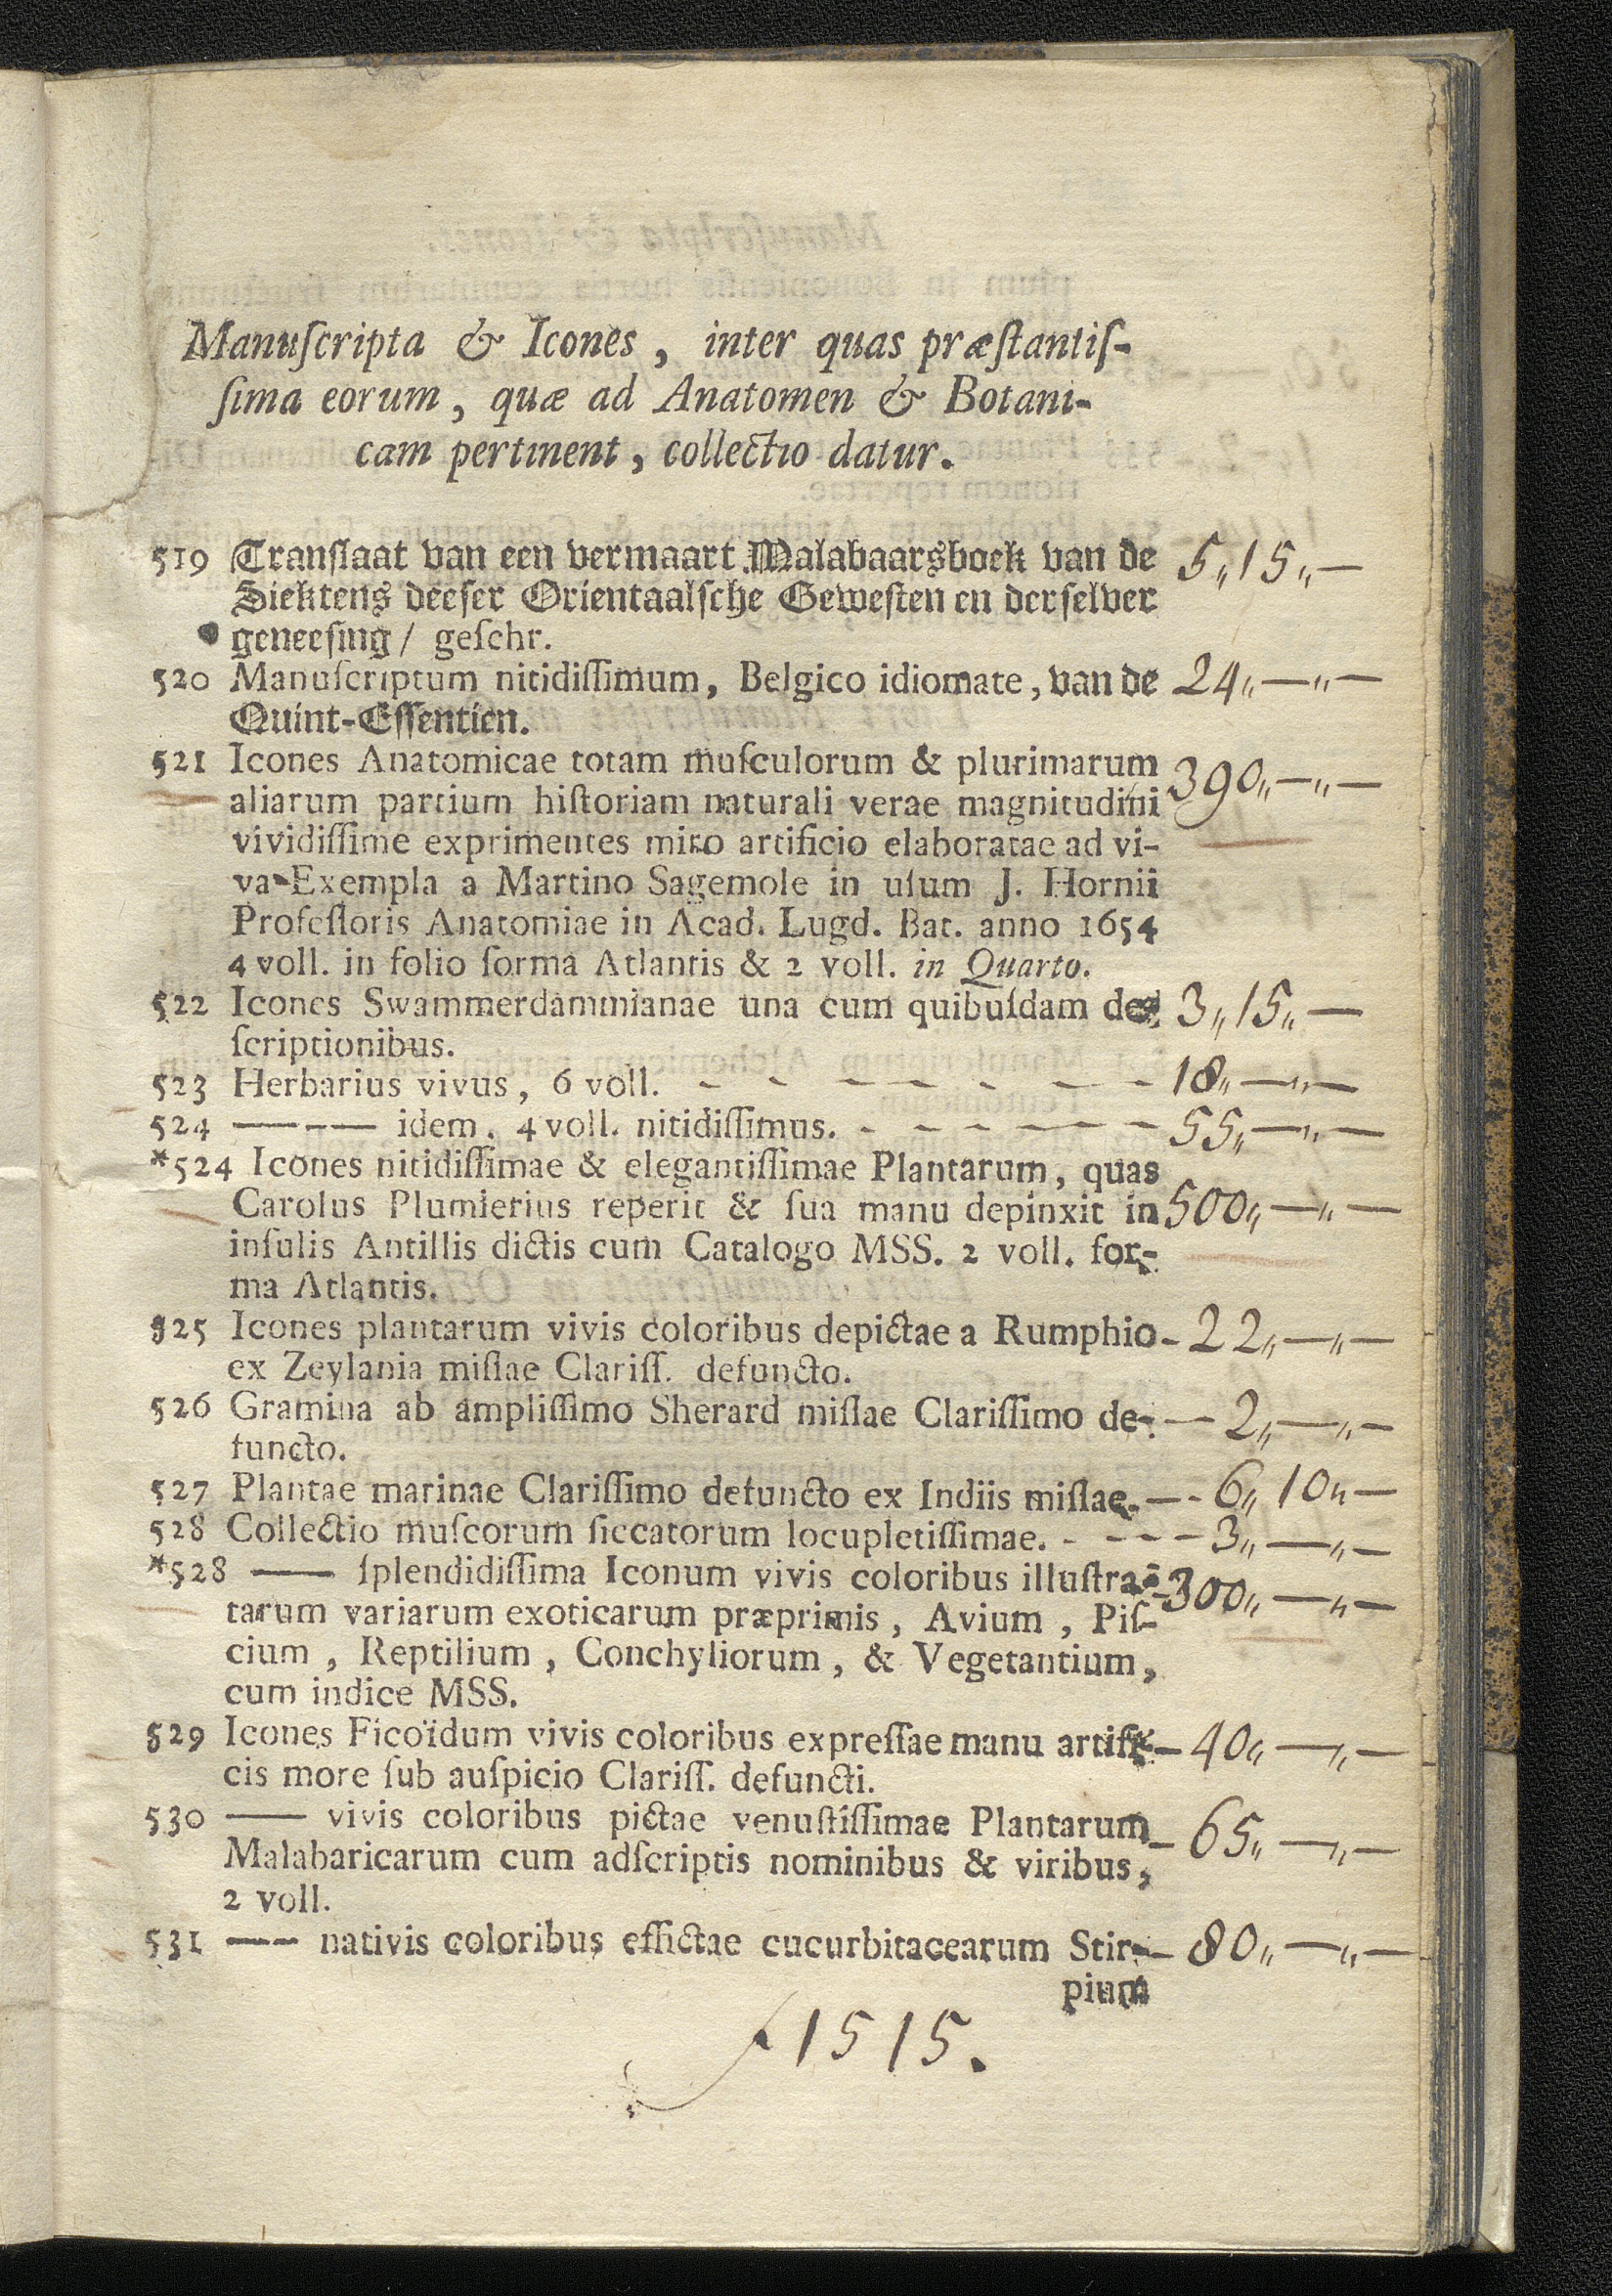 Manuſcripta & Icones, inter quas præſtantiſ-
ſima eorum, quæ ad Anatomen & Botani-
cam pertinent, collectio datur.
519 Tranſlaat van een vermaart Malabaarsboek van de 5,,15,,—
Siektens deeſer Orientaalſche Geweſten en derſelver
geneeſing / geſchr.
520 Manuſcriptum nitidiſſimum, Belgico idiomate, van de 24,,—,,—
Quint-Eſſentien.
521 Icones Anatomicae totam muſculorum & plurimarum 390,,—,,—
aliarum partium hiſtoriam naturali verae magnitudini
vividiſſime exprimentes miro artificio elaboratae ad vi-
va Exempla a Martino Sagemole in uſum J. Hornii
Profeſſoris Anatomiae in Acad. Lugd. Bat. anno 1654
4 voll. in folio forma Atlantis & 2 voll. in Quarto.
522 Icones Swammerdammianae una cum quibuſdam de- 3,,15,,—
ſcriptionibus.
523 Herbarius vivus, 6 voll. - - - - - - - 18,,—,,—
524 ——— idem, 4 voll. nitidiſſimus. - - - - - 55,,—,,—
*524 Icones nitidiſſimae & elegantiſſimae Plantarum, quas
Carolus Plumierius reperit & ſua manu depinxit in 500,,—,,—
inſulis Antillis dictis cum Catalogo MSS. 2 voll. for-
ma Atlantis.
525 Icones plantarum vivis coloribus depictae a Rumphio - 22,,—,,—
ex Zeylania miſſae Clariſſ. defuncto.
526 Gramina ab ampliſſimo Sherard miſſae Clariſſimo de- — 2,,—,,—
functo.
527 Plantae marinae Clariſſimo defuncto ex Indiis miſſae. — - 6,,10,,—
528 Collectio muſcorum ſiccatorum locupletiſſimae. - - - - 3,,—,,—
*528 —— ſplendidiſſima Iconum vivis coloribus illuſtra- 300,,—,,—
tarum variarum exoticarum præprimis, Avium, Piſ-
cium, Reptilium, Conchyliorum, & Vegetantium,
cum indice MSS.
529 Icones Ficoïdum vivis coloribus expreſſae manu artifi- — 40,,—,,—
cis more ſub auſpicio Clariſſ. defuncti.
530 —— vivis coloribus pictae venuſtiſſimae Plantarum - 65,,—,,—
Malabaricarum cum adſcriptis nominibus & viribus,
2 voll.
531 —— nativis coloribus effictae cucurbitacearum Stir- — 80,,—,,—
pium
ƒ 1515.